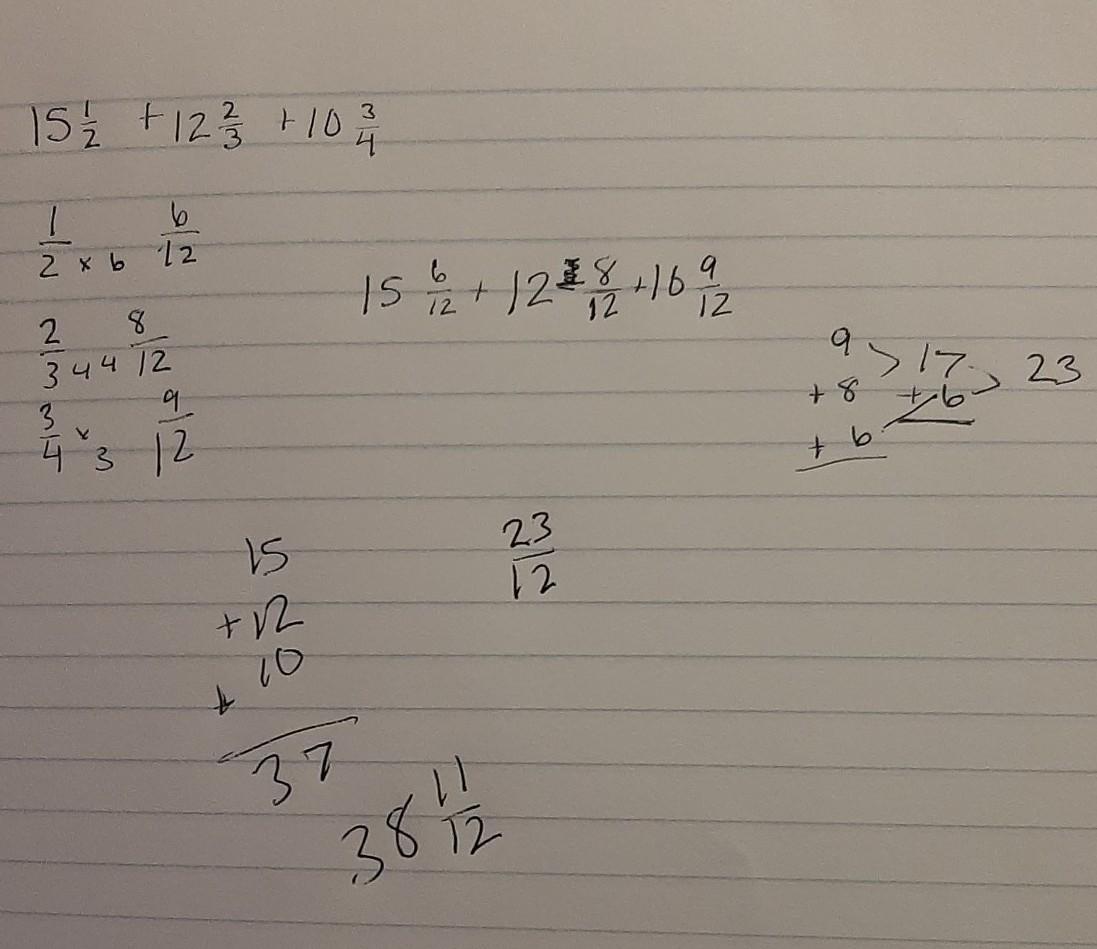 15 1/2 + 12 2/3 + 10 3/4
1/2 x 6 6/12
2/3 4 4 8/12
3/4 x 3 9/12
15 6/12 + 12 8/12 + 10 9/12
9 > 17 > 23
+ 8 + 6
+ 6
15
+ 12
+ 10
37
23/12
38 11/12